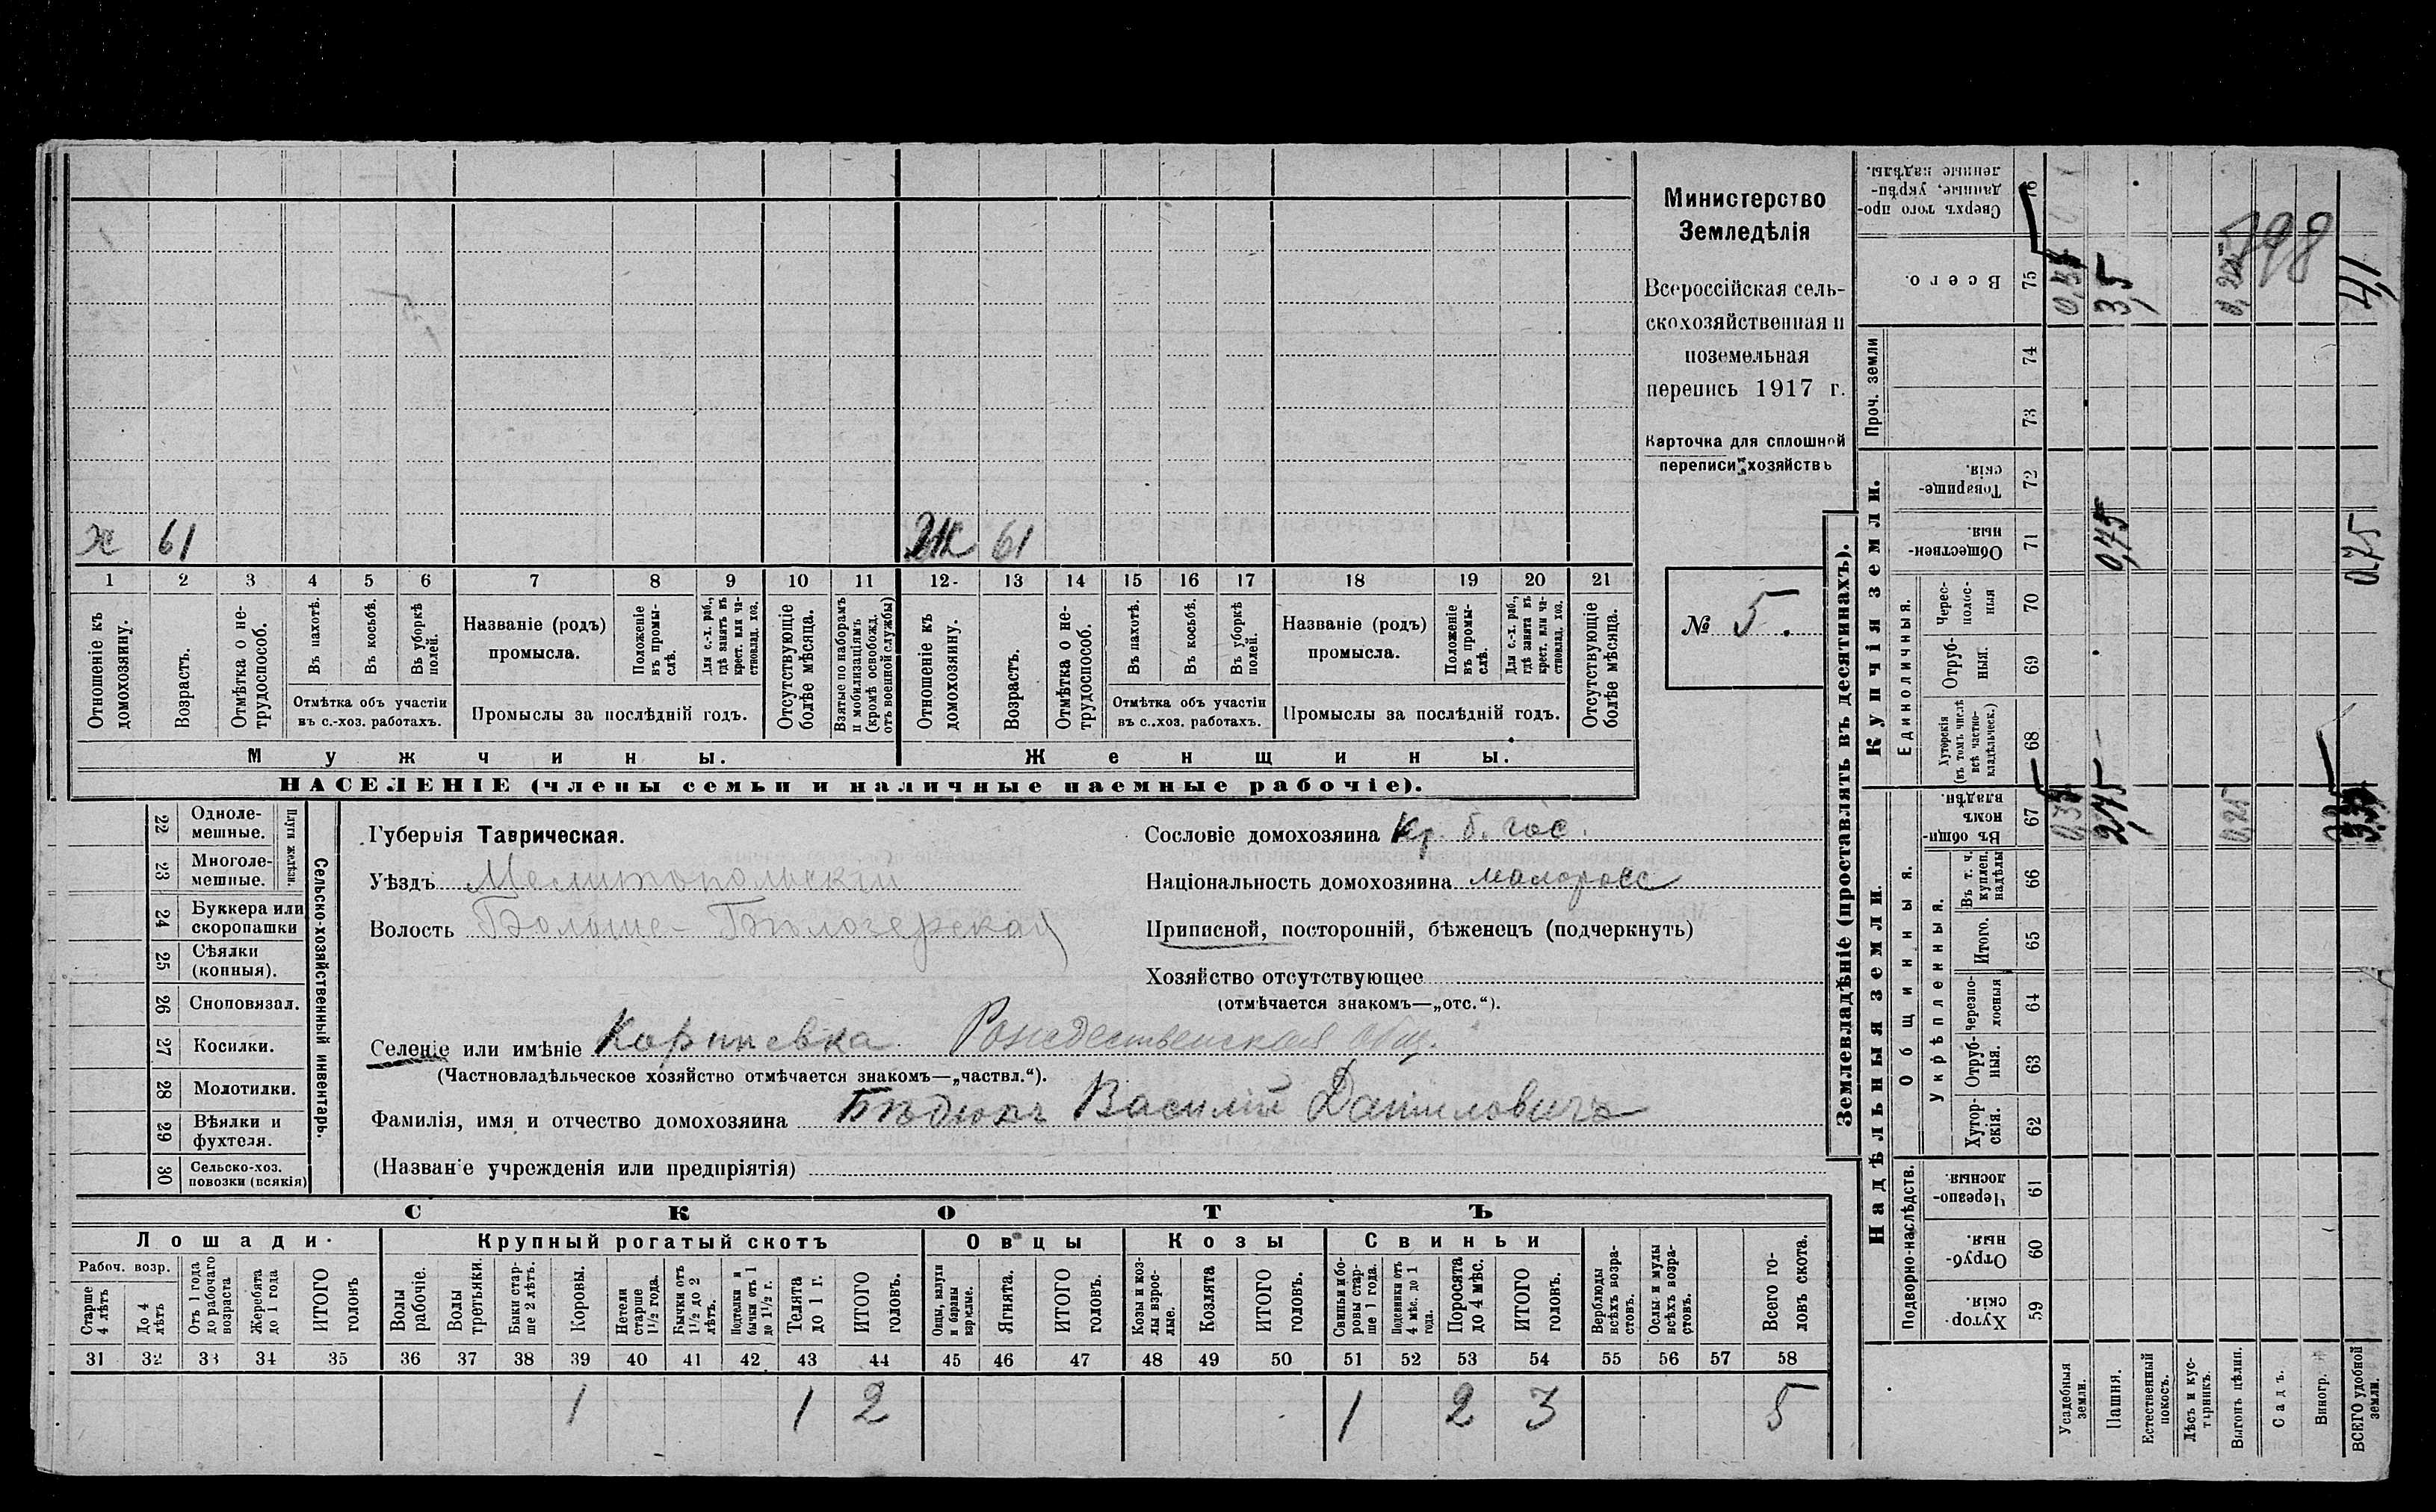 х 61 ЖК 61
1 2 3 4 5 6 7 8 9 10 11 12 13 14 15 16 17 18 19 20 21
Отношеніе къ домохозяину.
Возрастъ.
Отмѣтка о не-трудоспособ.
Въ пахотѣ.
Въ косьбѣ.
Въ уборкѣ полей.
Отмѣтка объ участіи
въ с.-хоз. работахъ.
Названіе (родъ)
промысла.
Положеніе въ промы-слѣ.
Для с.-х. раб., гдѣ занятъ въ крест. или ча-стновлад. хоз.
Промыслы за послѣдній годъ.
Отсутствующіе болѣе мѣсяца.
Взятые по наборамъ и мобилизаціямъ (кромѣ освобожд. отъ военной службы)
Отношеніе къ домохозяину.
Возрастъ.
Отмѣтка о не-трудоспособ.
Въ пахотѣ.
Въ косьбѣ.
Въ уборкѣ полей.
Отмѣтка объ участіи
въ с.-хоз. работахъ.
Названіе (родъ)
промысла.
Положеніе въ промы-слѣ.
Для с.-х. раб., гдѣ занята въ крест. или ча-стновлад. хоз.
Промыслы за послѣдній годъ.
Отсутствующіе болѣе мѣсяца.
Мужчины. Женщины.
НАСЕЛЕНІЕ (члены семьи и наличные наемные рабочіе).
Министерство
Земледѣлія
Всероссійская сель-
скохозяйственная и
поземельная
перепись 1917 г.
Карточка для сплошной
переписи хозяйствъ
№ 5.
22 Одноле-мешные.
23 Многоле-мешные.
Плуги желѣзн.
24 Буккера или скоропашки
25 Сѣялки (конныя).
26 Сноповязал.
27 Косилки.
28 Молотилки.
29 Вѣялки и фухтеля.
30 Сельско-хоз. повозки (всякія)
Сельско-хозяйственный инвентарь.
Губернія Таврическая.
Уѣздъ Мелитопольскій
Волость Больше-Бѣлозерская
Сословіе домохозяина Кр. б. гос.
Національность домохозяина малоросс
Приписной, посторонній, бѣженецъ (подчеркнуть)
Хозяйство отсутствующее
(отмѣчается знакомъ—„отс.“).
Селеніе или имѣніе Корнѣевка Рождественская общ.
(Частновладѣльческое хозяйство отмѣчается знакомъ—„частвл.“).
Фамилія, имя и отчество домохозяина Бѣдюхъ Василій Даниловичъ
(Названіе учрежденія или предпріятія)
СКОТЪ
Лошади. Крупный рогатый скотъ Овцы Козы Свиньи
Рабоч. возр.
Старше 4 лѣтъ
До 4 лѣтъ
Отъ 1 года до рабочаго возраста
Жеребята до 1 года
ИТОГО головъ
Волы рабочіе.
Волы третьяки.
Быки стар-ше 2 лѣтъ.
Коровы.
Нетели старше 1½ года.
Бычки отъ 1½ до 2 лѣтъ.
Подтелки и бычки отъ 1 до 1½ г.
Телята до 1 г.
ИТОГО головъ.
Овцы, валухи и бараны взрослые.
Ягнята.
ИТОГО головъ.
Козы и коз-лы взрос-лые.
Козлята
ИТОГО головъ.
Свиньи и бо-ровы стар-ше 1 года.
Подсвинки отъ 4 мѣс. до 1 года.
Поросята до 4 мѣс.
ИТОГО головъ.
Верблюды всѣхъ возра-стовъ.
Ослы и мулы всѣхъ возра-стовъ.
Всего го-ловъ скота.
31 32 33 34 35 36 37 38 39 40 41 42 43 44 45 46 47 48 49 50 51 52 53 54 55 56 57 58
1 1 2 1 2 3 5
Землевладѣніе (проставлять въ десятинахъ).
Надѣльныя земли. Купчія земли. Проч. земли
Подворно-наслѣдств. Общинныя. Укрѣпленныя. Единоличныя.
Хутор-скія. 59
Отруб-ныя. 60
Черезпо-лосныя. 61
Хутор-скія. 62
Отруб-ныя. 63
Черезпо-лосныя 64
Итого. 65
Въ т. ч. куплен. надѣлы 66
Въ общин-номъ владѣн. 67
Хуторскія (въ томъ числѣ всѣ частно-владѣльческ.) 68
Отруб-ныя. 69
Черес-полос-ныя 70
Обществен-ныя 71
Товарище-скія. 72
73
74
Всего. 75
Сверхъ того про-данные, укрѣп-ленные надѣлы. 76
Усадебныя земли.
Пашня. 2,75 0,75 3,5
Естественный покосъ.
Лѣсъ и кус-тарникъ.
Выгонъ цѣлин. 0,25 0,25
Садъ.
Виногр.
ВСЕГО удобной земли. 0,75 4,1
798